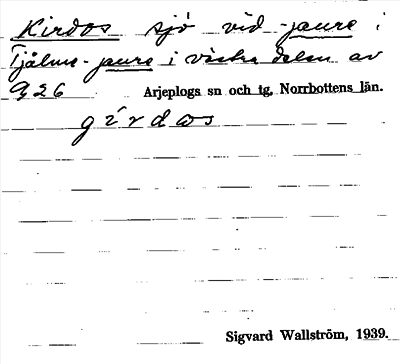 Kirdos sjö vid -jaure i
Tjålme-jaure i västra delen av
926 Arjeplogs sn och tg, Norrbottens län.
gírdos
Sigvard Wallström, 1939.